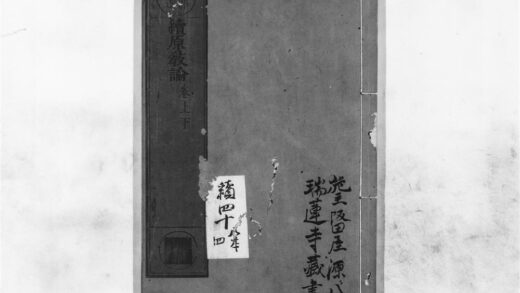 施主阪田屋源八
瑞蓮寺藏書
續四十四
續原教論卷上下